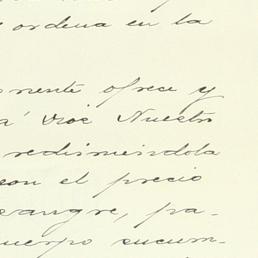 ordena en la
nente ofrece y
á Dios Nuestro
redimiendola
con el precio
sangre, pa-
cuerpo sucum-